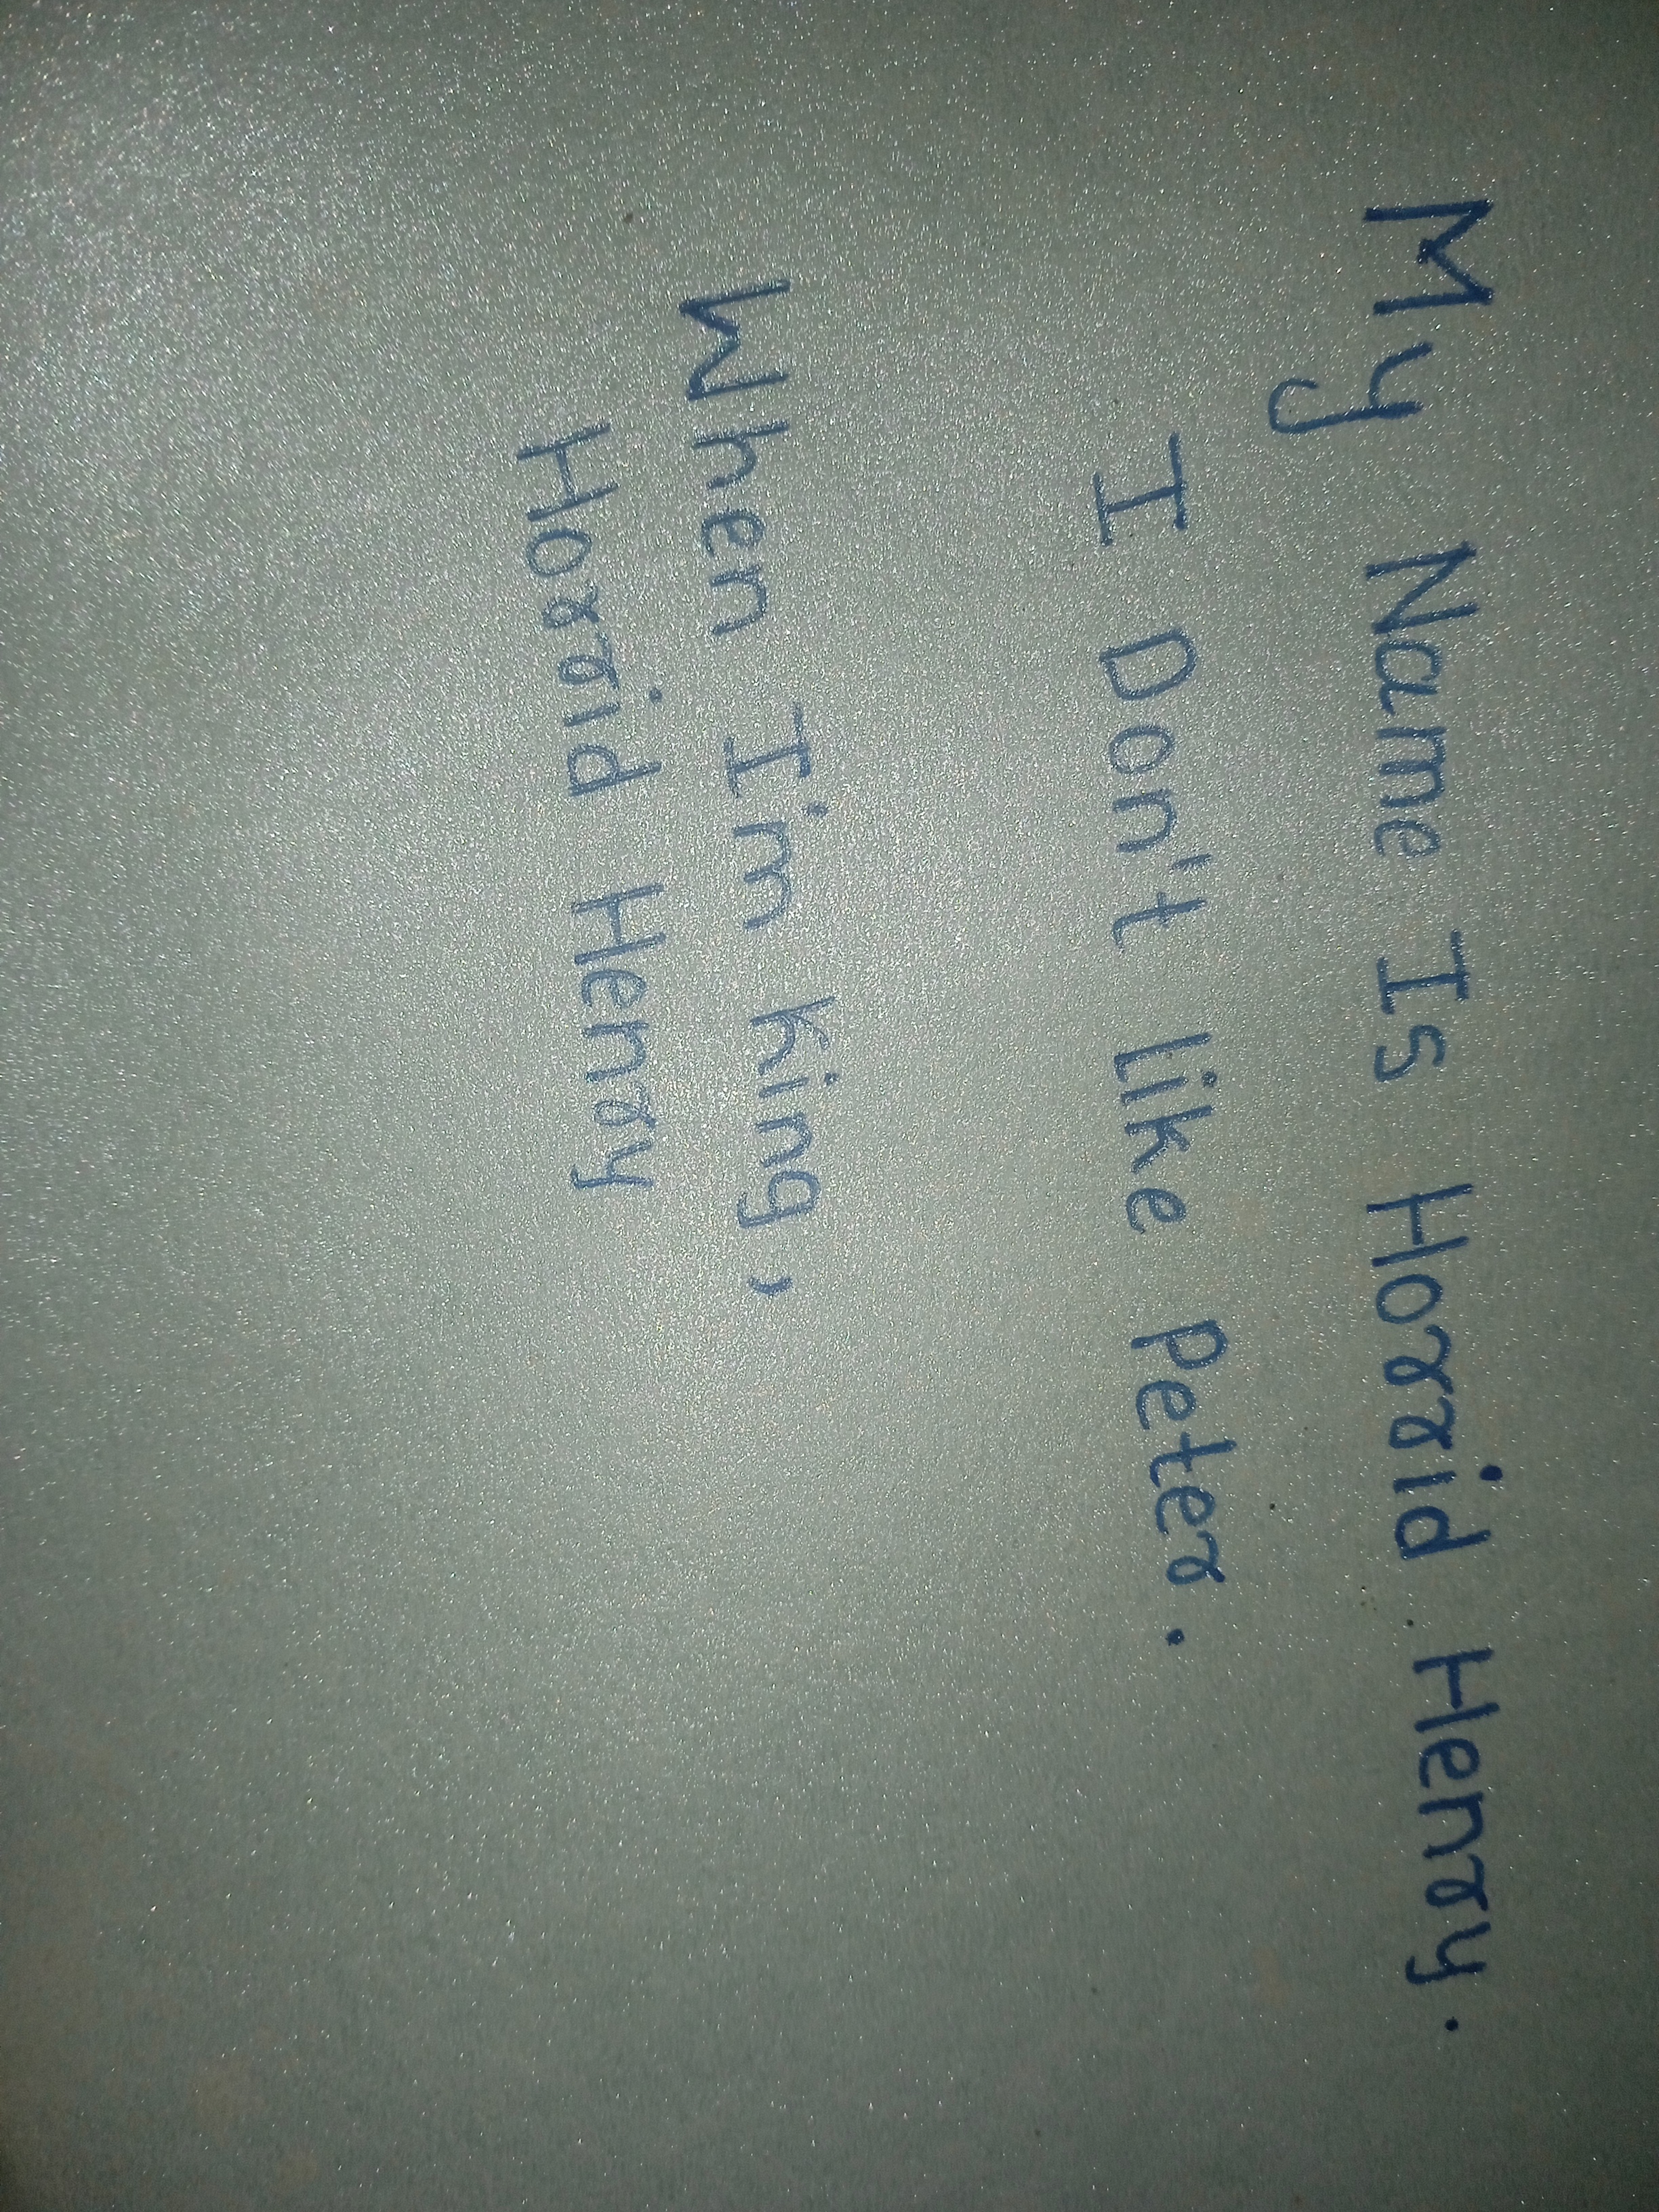 My Name Is Horrid Henry.
I Don't like Peter.
When I'm king,
Horrid Henry